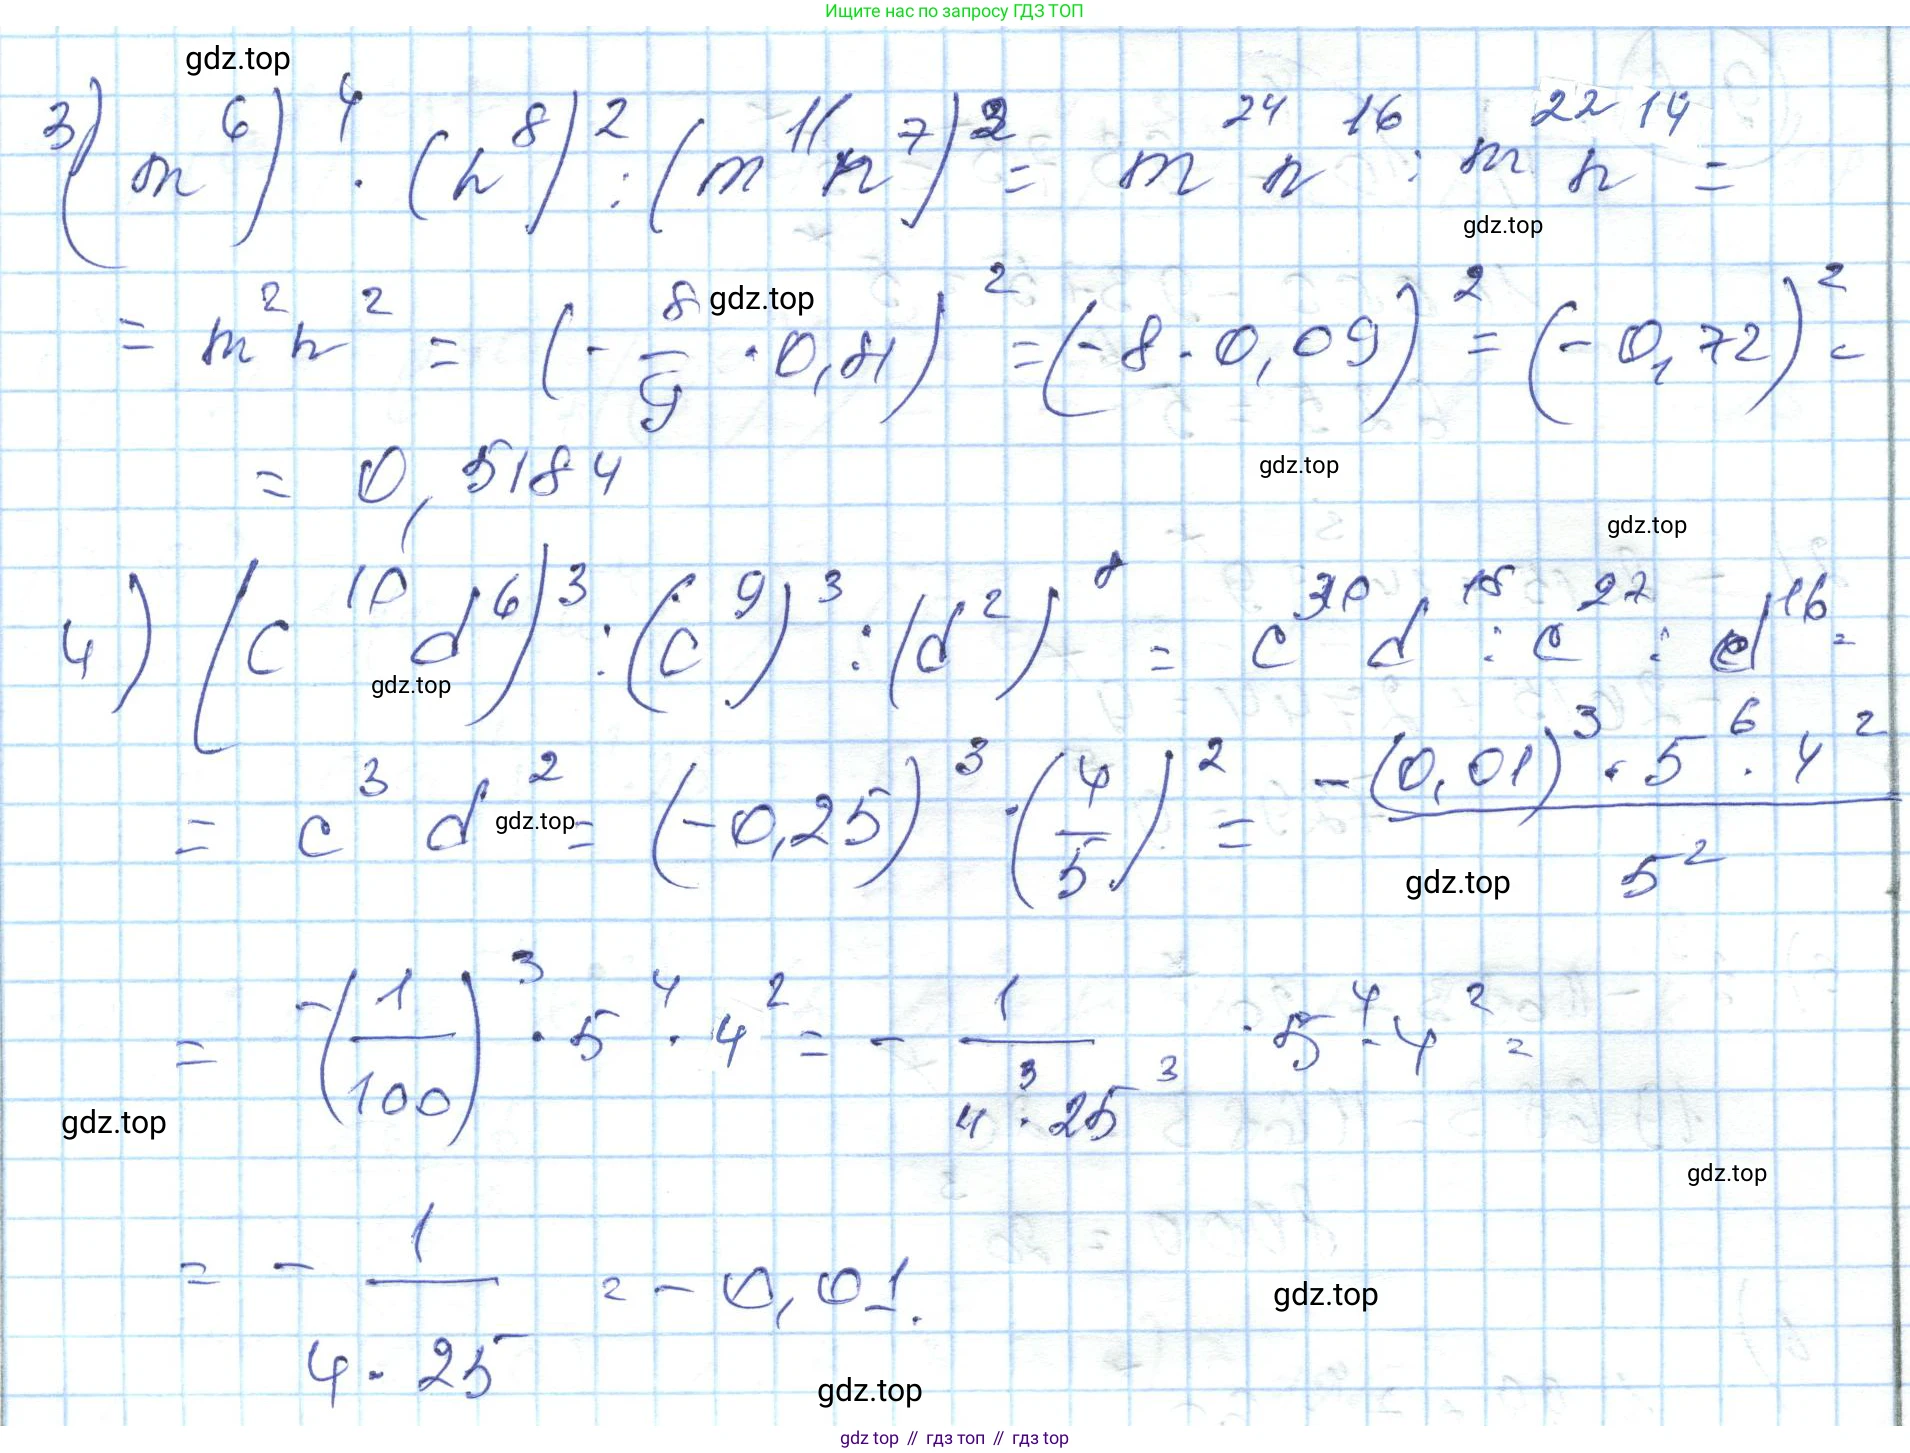 Ищите нас по запросу ГДЗ ТОП
gdz.top
3) (m⁶)⁴ · (n⁸)² : (m¹¹n⁷)² = m²⁴ n¹⁶ : m²² n¹⁴ =
gdz.top
= m²n² = (-8/9 · 0,81)² = (-8 · 0,09)² = (-0,72)² =
gdz.top
= 0,5184
gdz.top
gdz.top
4) (c¹⁰ d⁶)³ : (c⁹)³ : (d²)⁸ = c³⁰ d¹⁸ : c²⁷ : d¹⁶ =
gdz.top
= c³ d² = (-0,25)³ · (4/5)² = -(0,01)³ · 5⁶ · 4² / 5²
gdz.top
gdz.top
= -(1/100)³ · 5⁴ · 4² = - 1/(4³ · 25³) · 5⁴ · 4² =
gdz.top
gdz.top
= - 1/(4 · 25) = - 0,01.
gdz.top
gdz.top
gdz top // гдз топ // гдз top